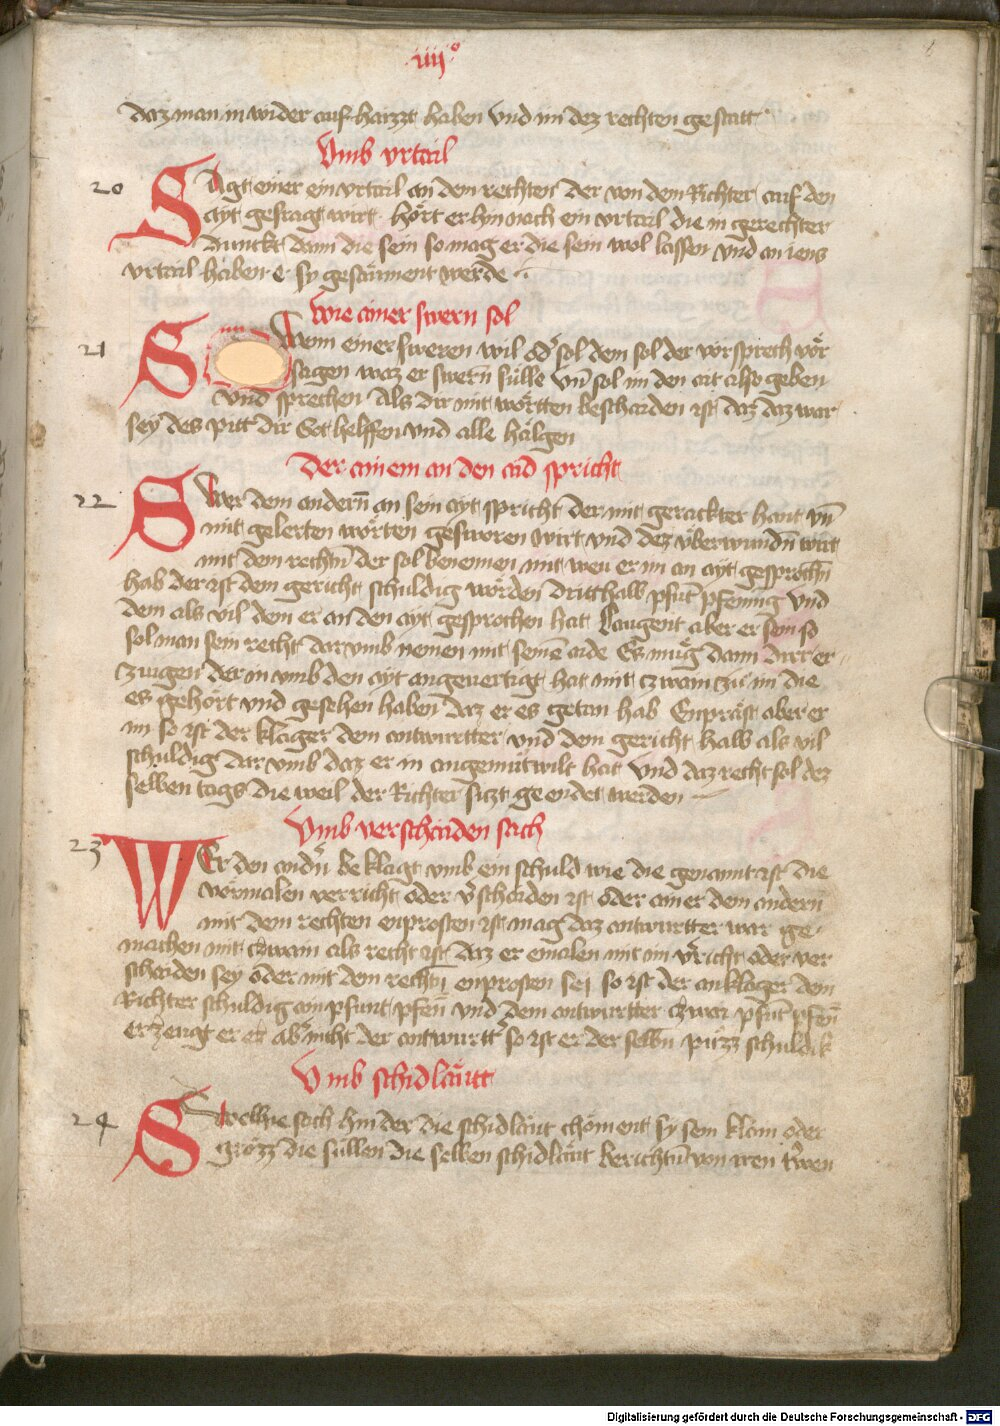 .iiij.º
daz man in wider auf haizzt haben vnd im dez rechten gestatt
Vmb vrtail
20 SAgt einer ein vrtail an dem rechten der von dem Richter auf den
ayt gefragt wirt hört er hin nach ein vrtail die in gerechter
dunckt dann die sein so mag er die sein wol lassen vnd an iens
vrtail haben e sy gesament werde
Wie ainer swern sol
21 SWenn einer sweren wil od' sol dem sol der vorsprech vor
sagen waz er swern sülle vn̄ sol im den ait also geben
vnd sprechen Als dir mit wortten beschaiden ist daz daz war
sey des pitt dir Got helffen vnd alle hälgen
Der ainem an den aid spricht
22 SWer dem andern̄ an sein ayt spricht der mit gerackter hant vn̄
mit gelerten wörten gesworen wirt vnd dez vberwundn̄ wirt
mit dem rechtn̄ der sol benemen mit weu er im an ayt gesprochn̄
hab der ist dem gericht schuldig worden dritthalb pfūt pfening vnd
dem als vil dem er an den ayt gesprochen hat Laugent aber er sein so
sol man sein recht dar vmb nemen mit seinē aide Es müg dann dirr er
zeugen der in vmb den ayt angeuertigt hat mit czwain zü im die
es gehört vnd gesehen haben daz er es getan hab Enpräst aber er
im so ist der klager dem antwurtter vnd dem gericht halb als vil
schuldig dar vmb daz er in angemutwilt hat vnd daz recht sol dez
selben tags die weil der Richter sizt geendet werden
Vmb verschaiden sach
23 WEr den andn̄ beklagt vmb ein schuld wie die genannt ist die
vormalen verricht oder v'schaiden ist oder ainer dem andern
mit dem rechten enprosten ist mag daz antwurtter war ge
machen mit czwain als recht ist daz er emalen mit im v'richt oder ver
schaiden sey oder mit dem rechtn̄ enprosten sei so ist der anklager dem
Richter schuldig ain pfunt pfen̄ vnd dem antwurtter czwai pfūt pfen̄
erzeugt er er ab' nicht der antwurtt' so ist er der selbn̄ puzz schuldik
Vmb schidläwt
24 SWelhie sach hin der die schidläut chöment sy sein klain oder
grözz die süllen die selben schidläut berichtn̄ von iren trwen
Digitalisierung gefördert durch die Deutsche Forschungsgemeinschaft - DFG